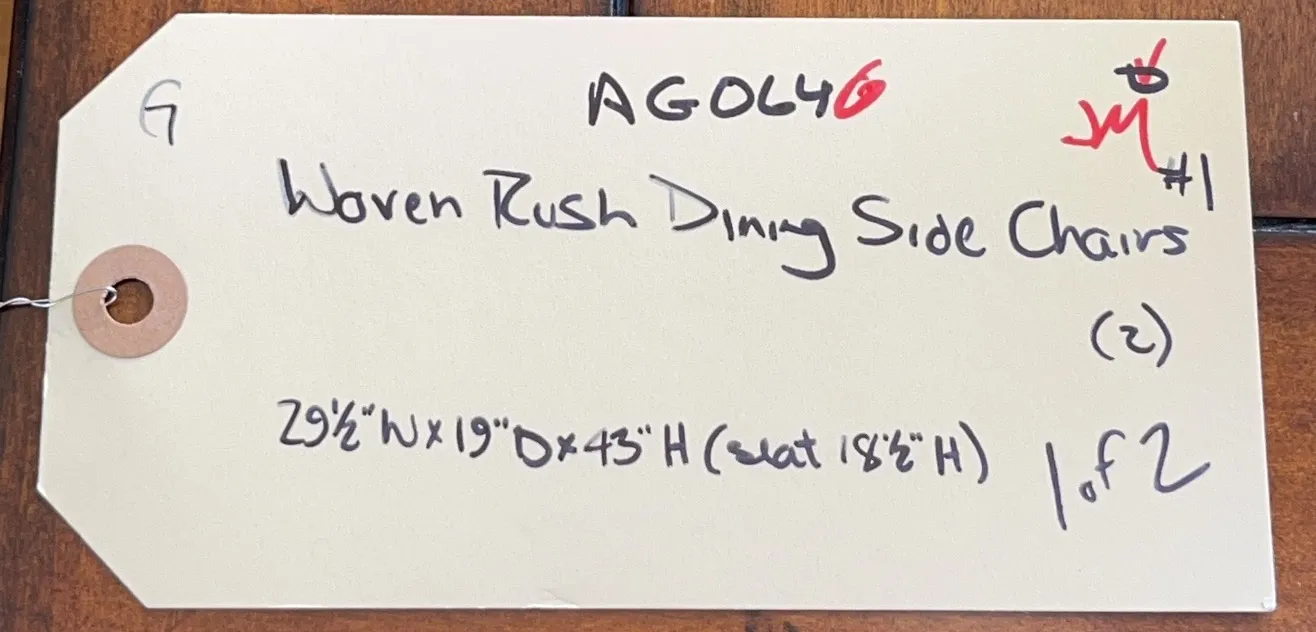 G
AG0646
JM
#1
Woven Rush Dining Side Chairs
(2)
29½" W x 19" D x 43" H (seat 18½" H)
1 of 2